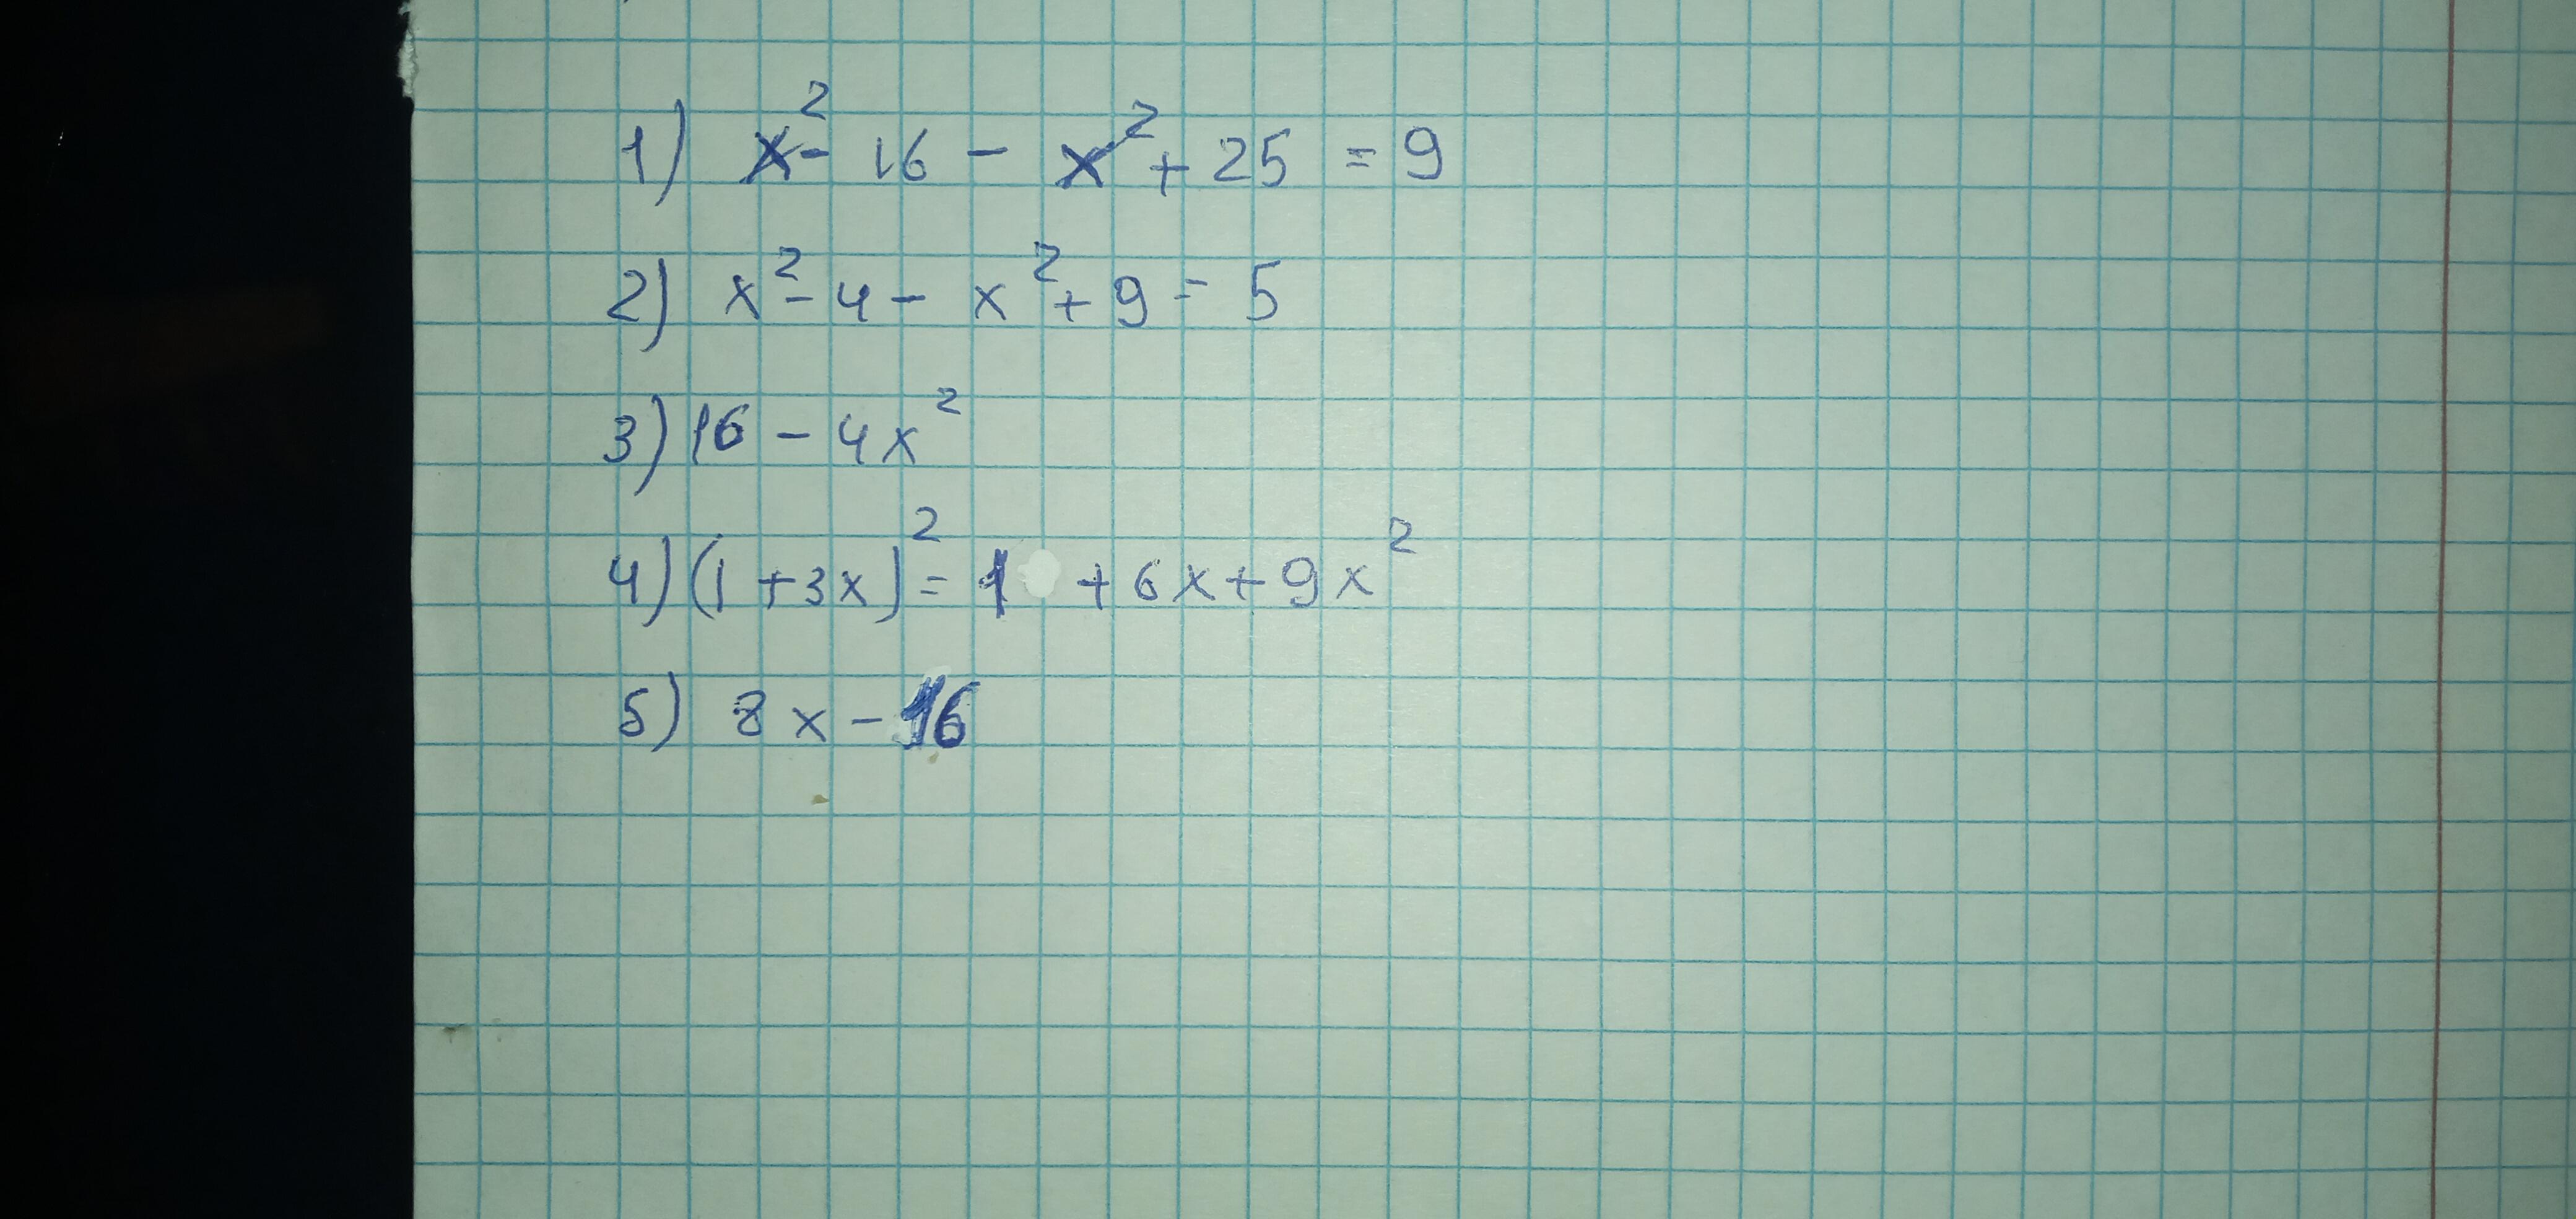 1) x² - 16 - x² + 25 = 9
2) x² - 4 - x² + 9 = 5
3) 16 - 4x²
4) (1 + 3x)² = 1 + 6x + 9x²
5) 8x - 16